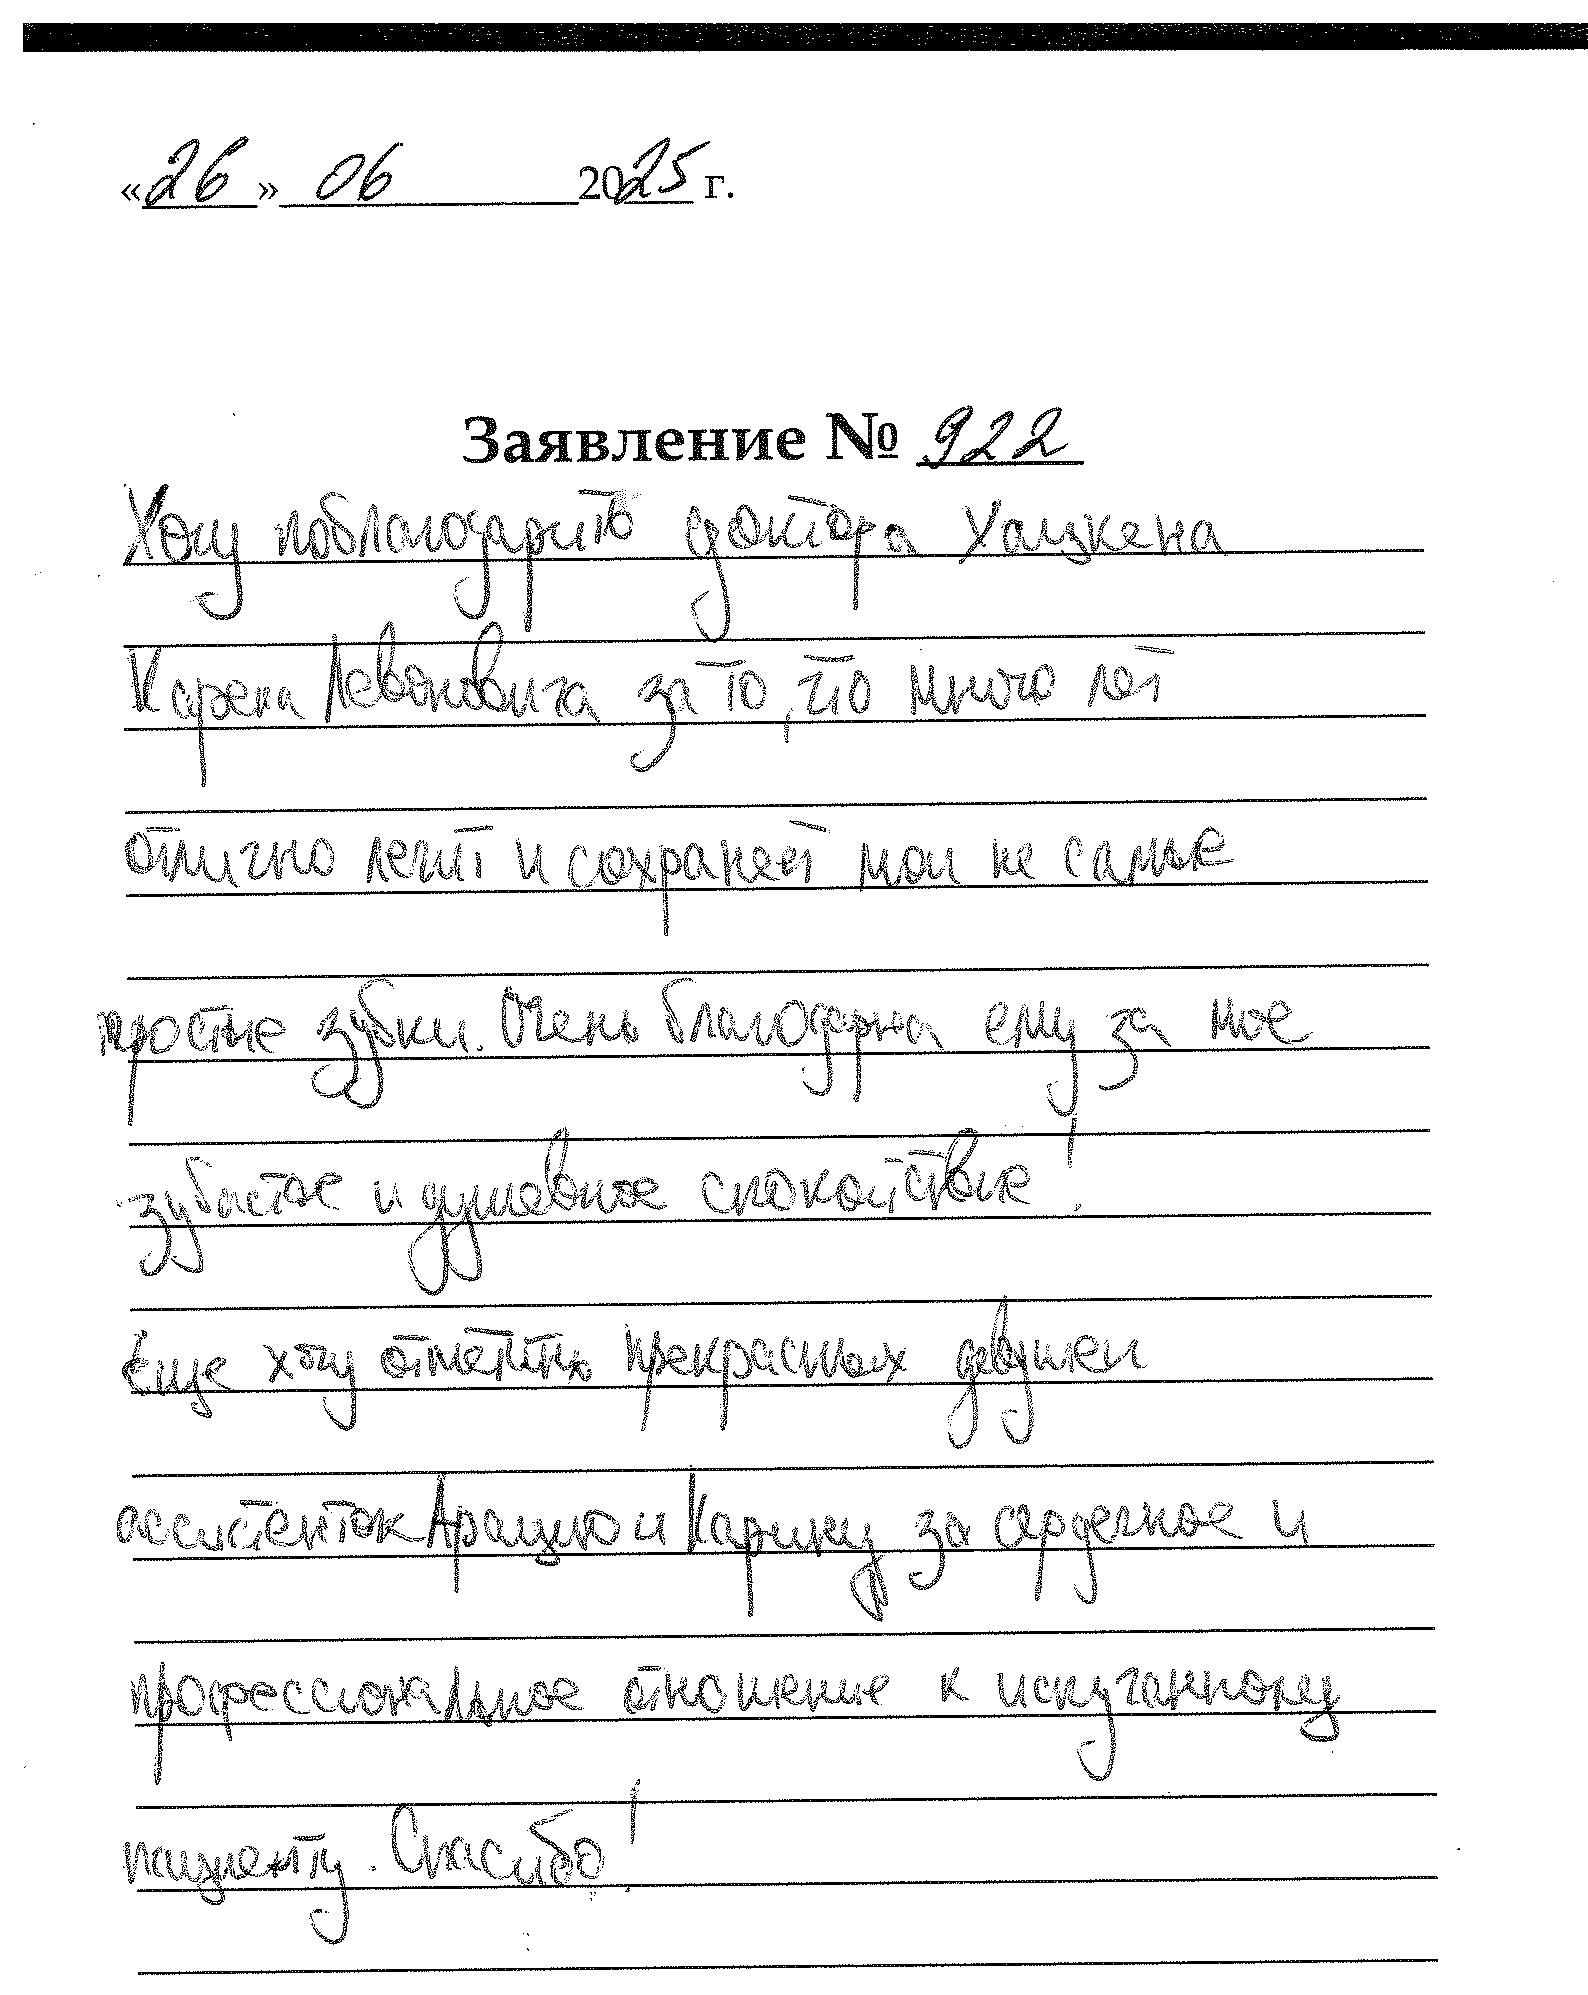 «26» 06 2025 г.
Заявление № 922
Хочу поблагодарить доктора
Карена Левоновича за то, что много лет
отлично лечит и сохраняет мои не самые
простые зубки. Очень благодарна ему за мое
зубастое и душевное спокойствие!
Еще хочу отметить прекрасных девушек
ассистенток и Карину за сердечное и
профессиональное отношение к испуганному
пациенту. Спасибо!